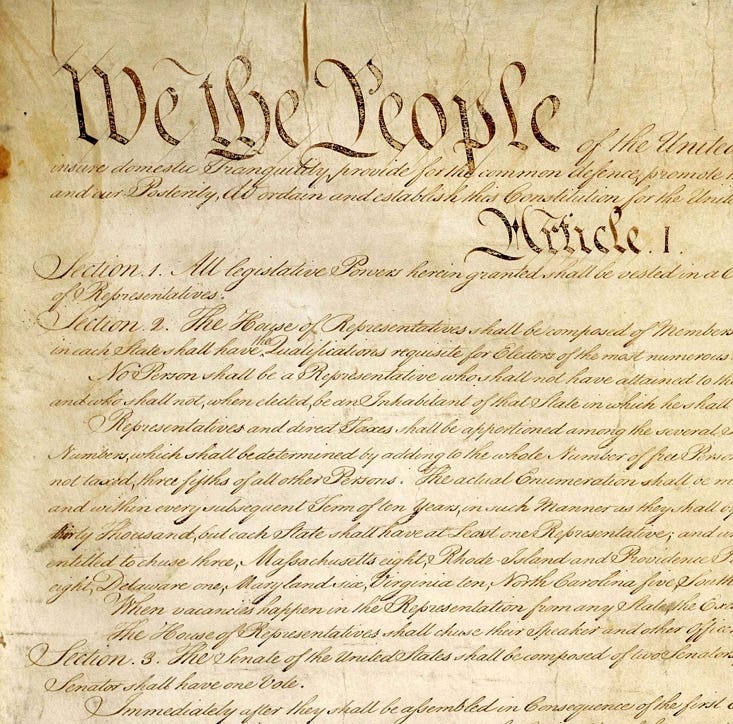 We the People of the United
insure domestic Tranquility, provide for the common defence, promote
and our Posterity, do ordain and establish this Constitution for the Unite
Article. I.
Section. 1. All legislative Powers herein granted shall be vested in a C
of Representatives.
Section. 2. The House of Representatives shall be composed of Members
in each State shall have the Qualifications requisite for Electors of the most numerous
No Person shall be a Representative who shall not have attained to the
and who shall not, when elected, be an Inhabitant of that State in which he shall
Representatives and direct Taxes shall be apportioned among the several
Numbers, which shall be determined by adding to the whole Number of free Perso
not taxed, three fifths of all other Persons. The actual Enumeration shall be m
and within every subsequent Term of ten Years, in such Manner as they shall by
thirty Thousand, but each State shall have at Least one Representative; and un
entitled to chuse three, Massachusetts eight, Rhode-Island and Providence P
eight, Delaware one, Maryland six, Virginia ten, North Carolina five, South
When vacancies happen in the Representation from any State, the Exe
The House of Representatives shall chuse their Speaker and other Office
Section. 3. The Senate of the United States shall be composed of two Senators
Senator shall have one Vote.
Immediately after they shall be assembled in Consequence of the first